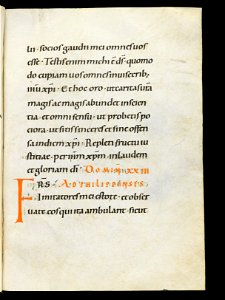 In socios gaudii mei omnes uos
esse. Testis enim mihi ẽ ds̄. quomo
do cupiam uos omnes in uiscerib;
ihū xp̄i. Et hoc oro. ut caritas ura
magis ac magis abundet in scien
tia. et omni sensu. ut probetis po
ciora. ut sitis sinceri et sine offen
sa in diem xp̄i. Repleti fructu iu
stitiae. per ihm̄ xp̄m. in laudem
et gloriam di. DOM XXIII
FRS. AD PHILIPENSES
Imitatores mei estote. et obser
uate eos qui ita ambulant. sicut